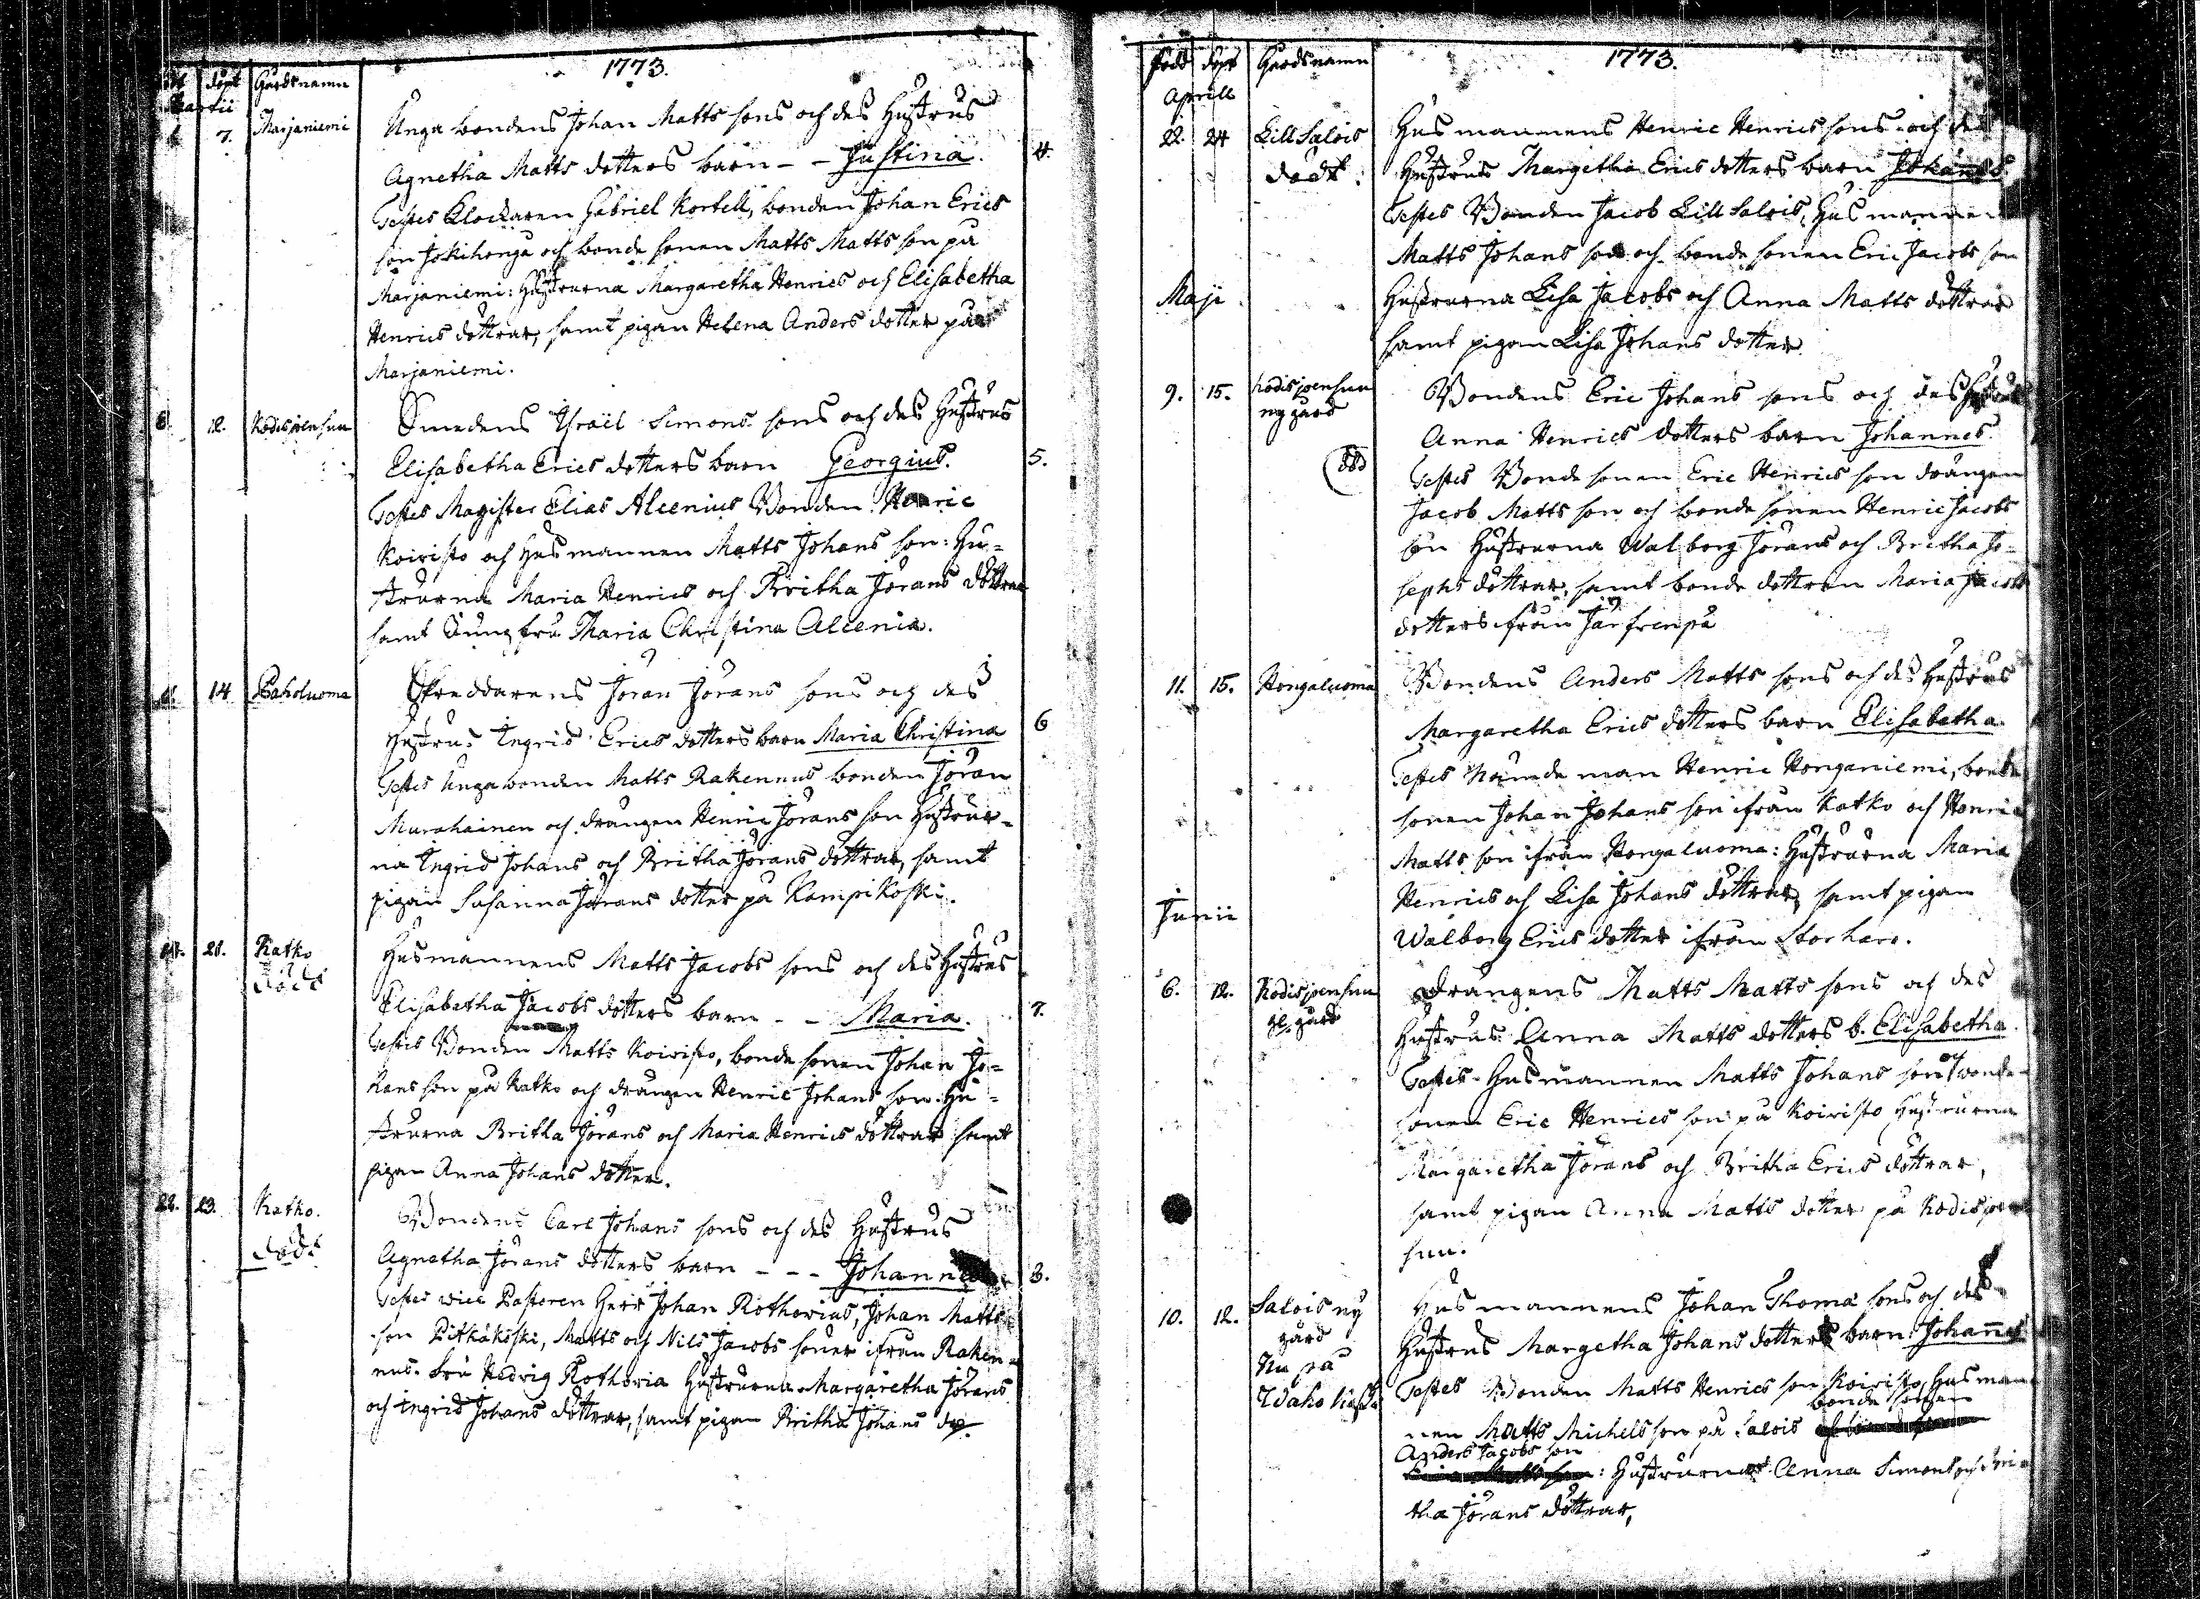 1773.
döpt Gårdsnamn
Martii
7. Marjaniemi Unga bondens Johan Matts sons och des Hustrus
Agnetha Matts dotters barn - - Justina. 4.
Testes Klockaren Gabriel Kortell, bonden Johan Erics
son Jokihonga och bonde sonen Matts Matts son på
Marjaniemi: Hustrurna Margaretha Henrics och Elisabetha
Henrics döttrar, samt pigan Helena Anders dotter på
Marjaniemi.
12. Kodisjoensuu Smedens Israël Simons sons och des Hustrus
Elisabetha Erics dotters barn Georgius. 5.
Testes Magister Elias Alcenius Bonden Henric
Koivisto och Husmannen Matts Johans son: Hu=
strurna Maria Henrics och Britha Jörans döttrar
samt Jungfru Maria Christina Alcenia.
14 Paholuoma Skreddarens Jöran Jörans sons och des
Hustrus Ingrid Erics dotters barn Maria Christina 6
Testes Unga bonden Matts Rakennus bonden Jöran
Murahainen och drängen Henric Jörans son Hustrur=
na Ingrid Johans och Britha Jörans döttrar, samt
pigan Susanna Jörans dotter på Kampikoski.
21. Katko Husmannens Matts Jacobs sons och des Hustrus
död
Elisabetha Jacobs dotters barn - - Maria. 7.
Testes Bonden Matts Koivisto, bonde sonen Johan Jo=
hans son på Katko och drängen Henric Johans son: Hu=
strurna Britha Jörans och Maria Henrics döttrar samt
pigan Anna Johans dotter.
22. 23. Katko. Bondens Carl Johans sons och des Hustrus
död
Agnetha Jörans dotters barn - - - Johannes 8.
Testes vice Pastoren Herr Johan Rothovius, Johan Matts
son Pitkäkoski, Matts och Nils Jacobs söner ifrån Raken=
nus. Fru Hedvig Rothovia Hustrurna Margaretha Jörans
och Ingrid Johans döttrar, samt pigan Britha Johans do.
1773.
född döpt Gårdsnamn
Aprill
22. 24 Lill Salois Husmannens Henric Henrics sons och des
dödt. Hustrus Margetha Erics dotters barn Johannes
Testes Bonden Jacob Lill Salois, Husmannen
Matts Johans son och bonde sonen Eric Jacobs son
Maji Hustrurna Lisa Jacobs och Anna Matts döttrar
samt pigan Lisa Johans dotter
9. 15. Kodisjoensuu Bondens Eric Johans sons och des Hustrus
ny gård
Anna Henrics dotters barn Johannes.
död Testes Bonde sonen Eric Henrics son drängen
Jacob Matts son och bonde sonen Henric Jacobs
son Hustrurna Walborg Jörans och Britha Jo=
sephs döttrar, samt bonde dottren Maria Jacobs
dotter ifrån
11. 15. Hongaluoma Bondens Anders Matts sons och des Hustrus
Margaretha Erics dotters barn Elisabetha.
Testes Nämde man Henric Honganiemi, bonde
sonen Johan Johans son ifrån Katko och Henric
Matts son ifrån Hongaluoma: Hustrurna Maria
Henrics och Lisa Johans döttrar, samt pigan
Junii
Walborg Erics dotter ifrån Storharo.
6. 12. Kodisjoensuu Drängens Matts Matts sons och des
gl. gård
Hustrus Anna Matts dotters b. Elisabetha.
Testes Husmannen Matts Johans son och bonde
sonen Eric Henrics son på Koivisto Hustrurna
Margaretha Jörans och Britha Erics döttrar,
samt pigan Anna Matts dotter på Kodisjoen
suu.
10. 12. Salois ny Husmannens Johan Thoma sons och des
gård
Nu på
Hustrus Margetha Johans dotters barn Johannes
Testes Bonden Matts Henrics son Koivisto, Husman
bonde sonen
nen Matts Michels son på Salois
Anders Jacobs son
: Hustrurna Anna Simons och Bri=
tha Jörans döttrar,